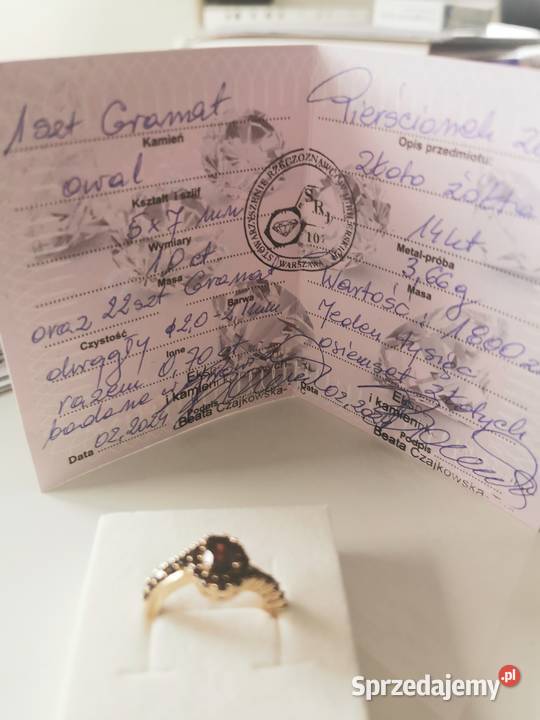 1 szt Granat
Kamień
owal
Kształt i szlif
5 x 7 mm
Wymiary
1,0 ct
Masa
oraz 22 szt Granat
Czystość Barwa
okrągły ø 2,0-2,1 mm
Inne
razem 0,70 ct
badano w
i kamieni
Podpis
Data 02.2024 Beata Czajkowska-
STOWARZYSZENIE RZECZOZNAWCÓW JUBILERSKICH
SRJ
10
WARSZAWA
Pierścionek
Opis przedmiotu:
złoto żółte
14 kt
Metal-próba
3,66 g
Masa
Wartość: 1800 zł
Jeden tysiąc
osiemset złotych
i kamieni
Data 02.
Podpis
Beata Czajkowska -
Sprzedajemy.pl